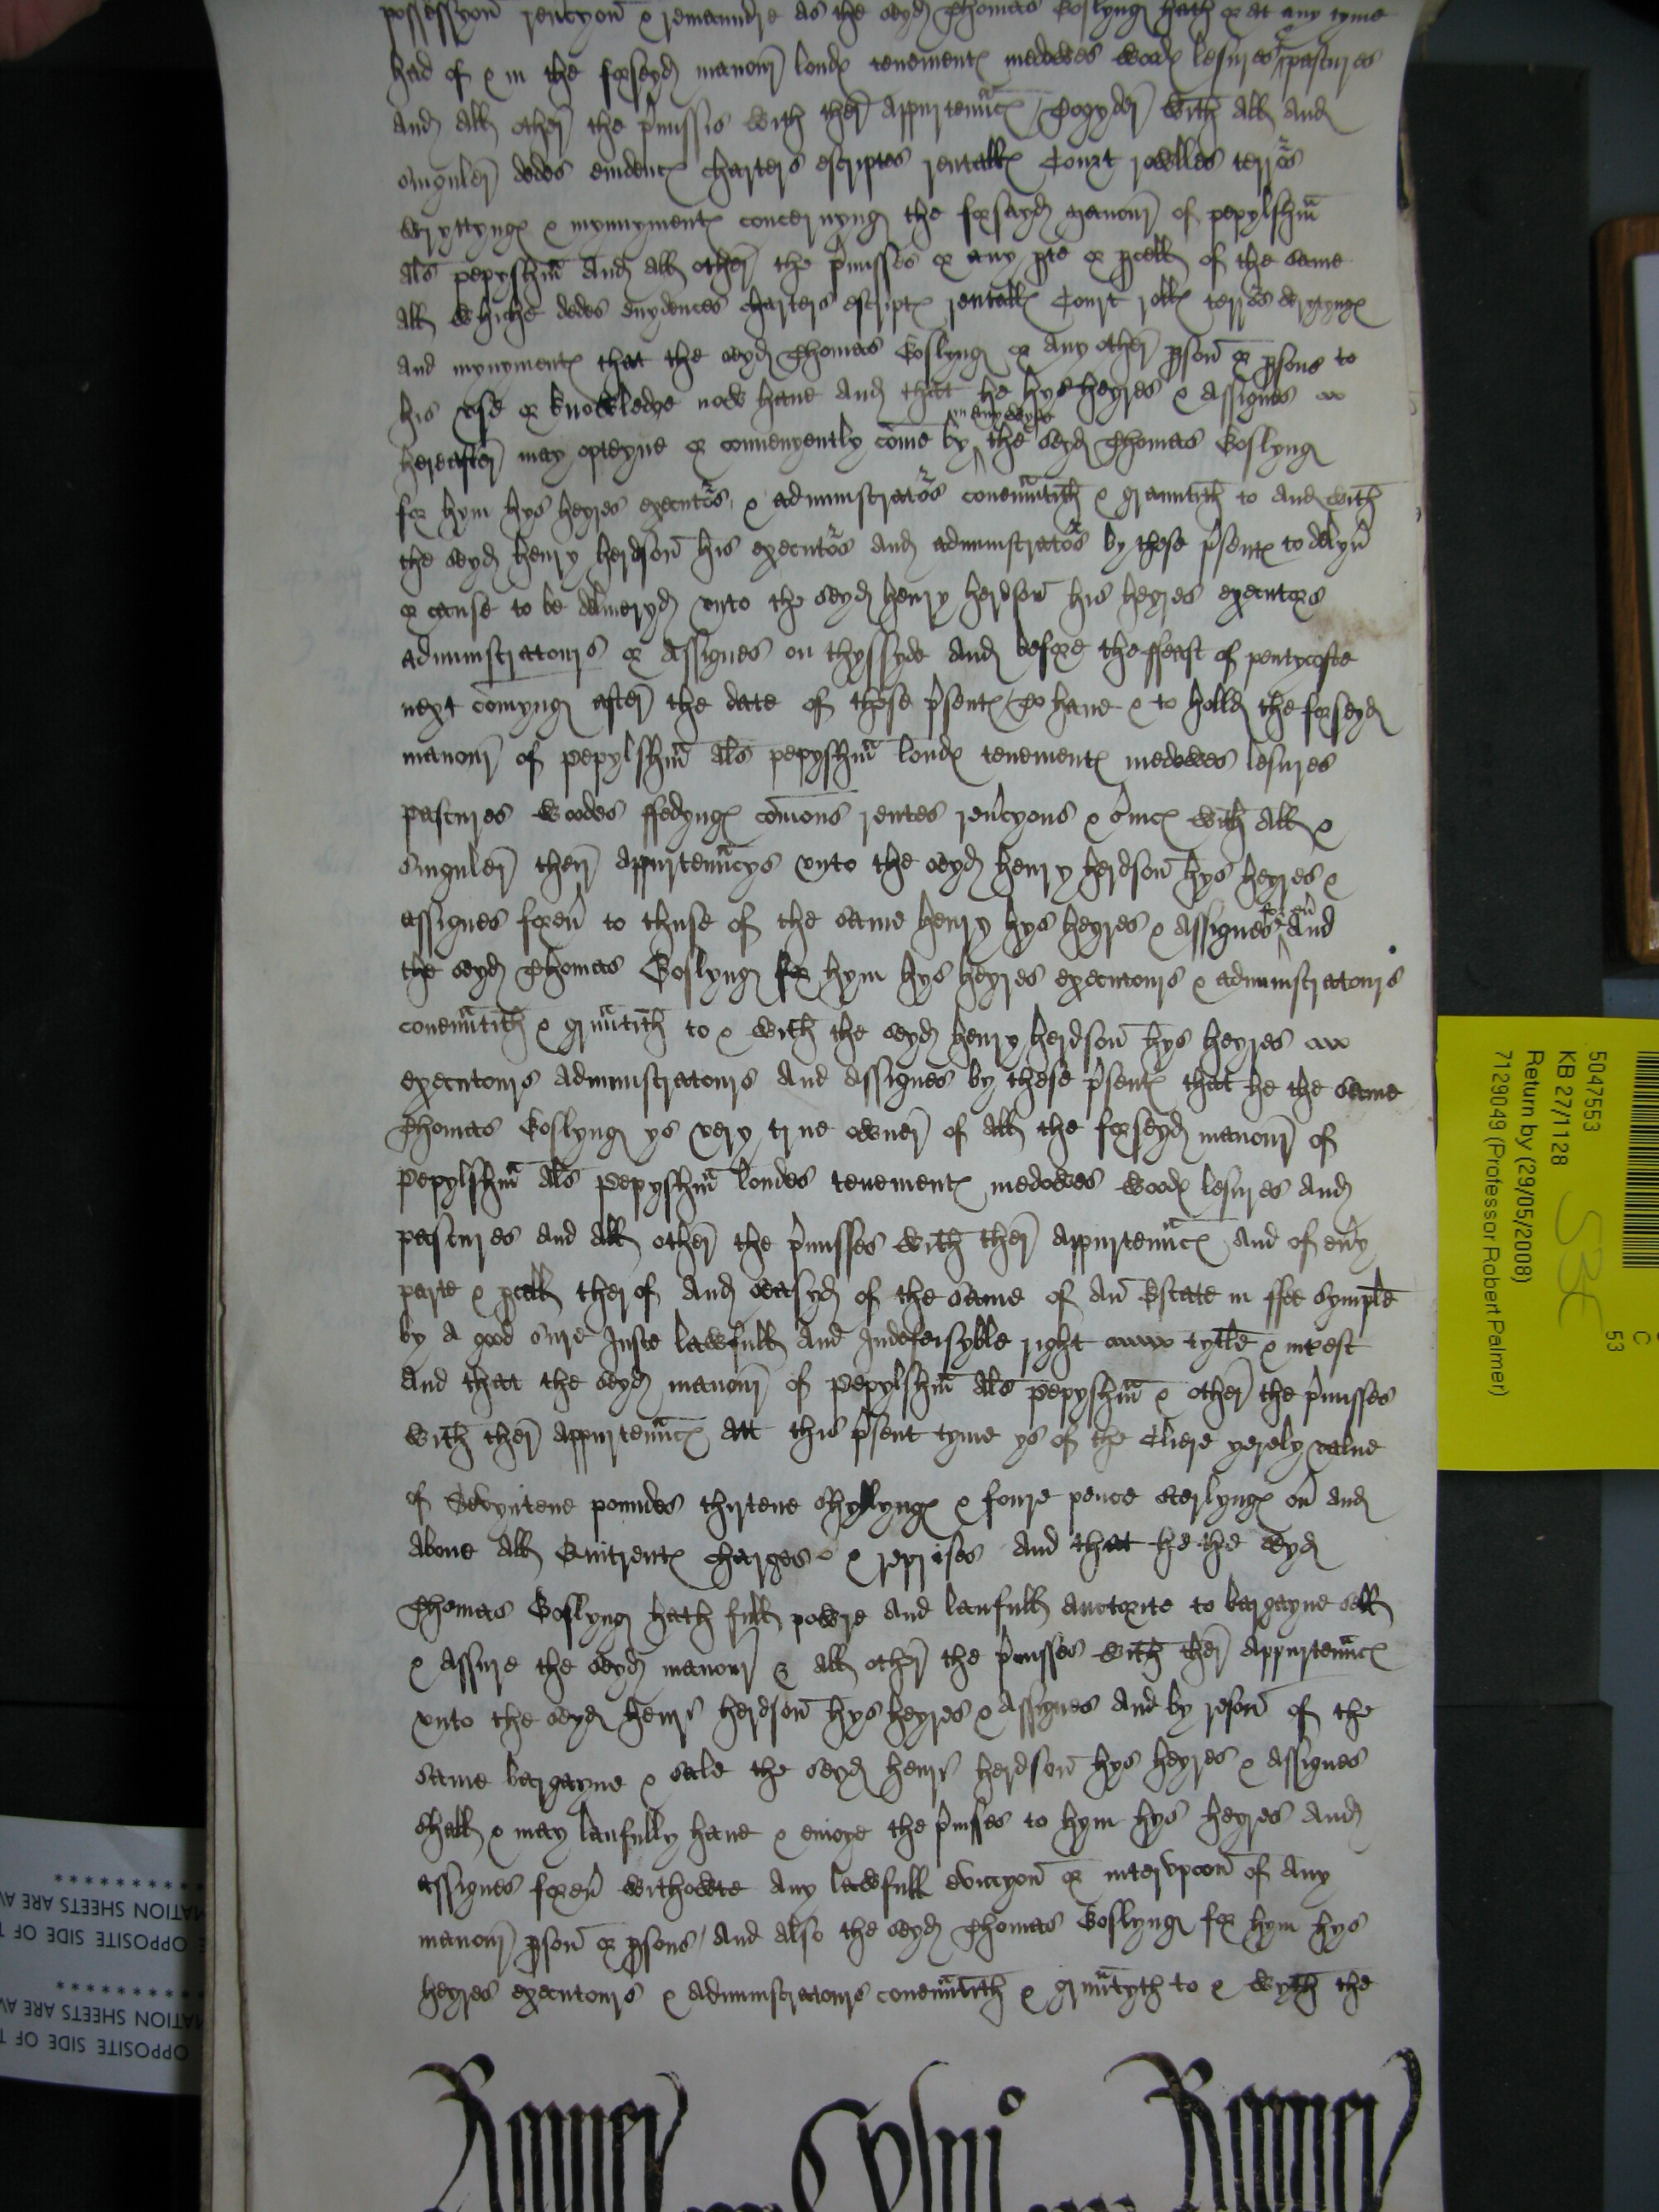 possessyon reucyon & remaundre as the seyd Thomas Goslyng hath or at any tyme
had of & in the forseyd manour londs tenements medowes woods lesures & pastures
And all other the pmissis with ther appurtenncs / Togyder with All And
singuler dedes euidents charters escriptes rentalls Court rowlles terrors
wryttyngs & mynyments concernyng the forsayd manour of pepylshm
als pepyshm And All other the pmisses or any pte or pcell of the same
All whiche dedes euydences charters escripts rentalls Court rolls terrors wrytyngs
And mynyments that the seyd Thomas Goslyng or Any other pson or psons to
his vse or knowledge now haue And that he hys heyres & Assignes
hereafter may opteyne or conuenyently come by in any wyse the seyd Thomas Goslyng
for hym hys heyres executors & administrators couenntith & graunttith to And with
the seyd henry herdson his executors And administrators by these psents to delyu
or cause to be delyueryd vnto the seyd henry herdson his heyres executors
administratours or Assignes on thyssyde And before the ffeast of pentycoste
next comyng after the date of these psents / To haue & to holld the forseyd
manour of pepylshm als pepyshm londs tenements medowes lesures
pastures woodes ffedyngs comons rentes reucyons & suics with All &
singuler ther Appurtenncys vnto the seyd henry herdson hys heyres &
assignes foreu to thuse of the same henry hys heyres & Assignes for eu And
the seyd Thomas Goslyng for hym hys heyres executours & administratours
couenntith & grnntith to & with the seyd henry herdson hys heyres
executours Administratours And Assignes by these psents that he the same
Thomas Goslyng ys very true owner of All the forseyd manour of
Pepylshm Als Pepyshm londes tenements medowes woods lesures And
pastures and All other the pmisses with ther Appurtenncs And of euy
parte & pcell therof And seasyd of the same of An Estate in ffee symple
by A good sure Juste lawfull And Indefesyble right tytle & intrest
And that the seyd manour of Pepylshm Als pepyshm & other the pmisses
with ther Appurtenncs Att this psent tyme ys of the Clere yerely value
of Sevyntene poundes thirtene shyllyngs & foure pence sterlyngs ou and
Aboue All Quitrents charges & reprises And that he the seyd
Thomas Goslyng hath full powre And laufull Auctorite to bargayne sell
& Assure the seyd manour & All other the pmisses with ther Appurtenncs
vnto the seyd henry herdson hys heyres & Assignes And by reson of the
same bargayne & sale the seyd henry herdson hys heyres & Assignes
shall & may laufully haue & enioye the pmisses to hym hys heyres And
assignes foreu withowte Any lawfull eviccyon or intervpcon of Any
manour pson or psons / And Also the seyd Thomas Goslyng for hym hys
heyres executours & Administratours couenntith & grnntyth to & wyth the
5047553
KB 27/1128
Return by (29/05/2008)
7129049 (Professor Robert Palmer)
53
C
MATION SHEETS ARE AV
OPPOSITE SIDE OF T
**********
MATION SHEETS ARE AV
OPPOSITE SIDE OF T